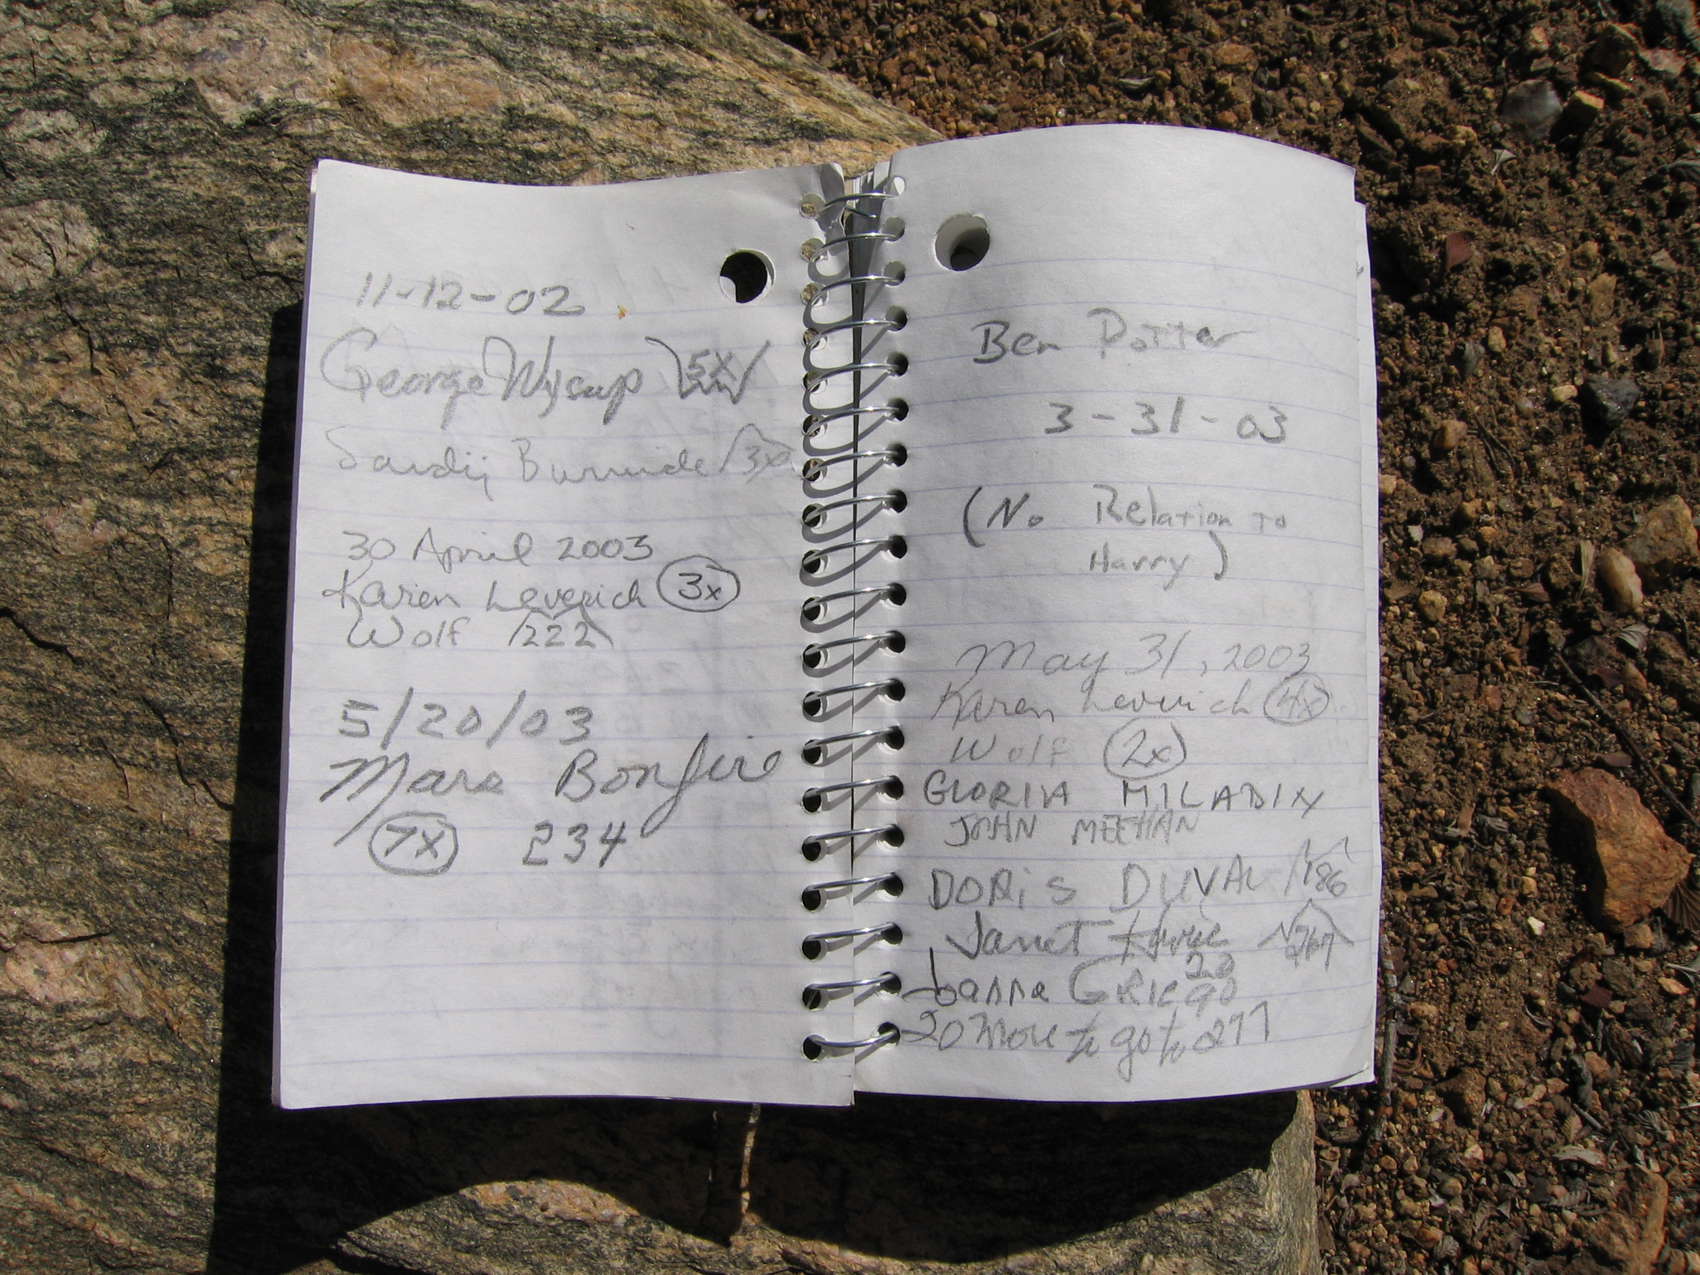 11-12-02
George Wysup 5X
Sandy Burnside 3x
30 April 2003
Karen Leverich 3x
Wolf 222
5/20/03
Mars Bonfire
7X 234
Ben Potter
3-31-03
(No Relation to
Harry)
May 31, 2003
Karen Leverich 4x
Wolf 2x
GLORIA MILADIN
JOHN MEEHAN
DORiS DUVAL 186
Janet 267
Joanna GRiego
20 More to go to 277